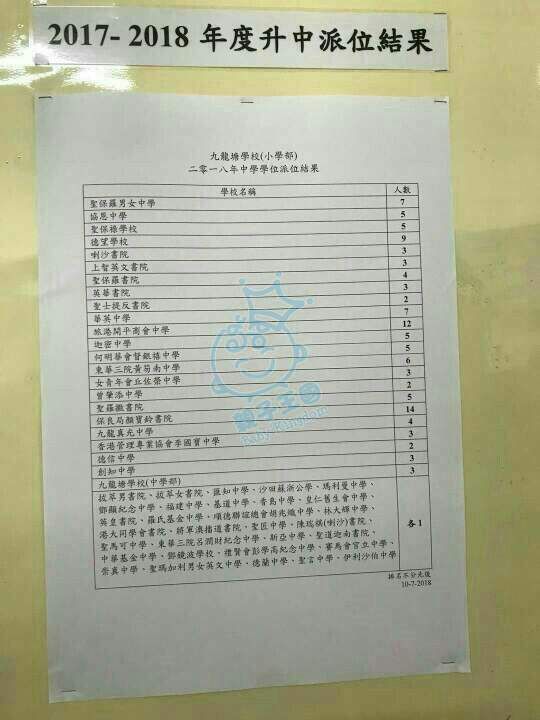 2017- 2018 年度升中派位結果
九龍塘學校(小學部)
二零一八年中學學位派位結果
學校名稱 人數
聖保羅男女中學 7
協恩中學 5
聖保祿學校 5
德望學校 9
喇沙書院 3
上智英文書院 3
聖保羅書院 4
英華書院 3
聖士提反書院 2
華英中學 7
旅港開平商會中學 12
迦密中學 5
何明華會督銀禧中學 5
東華三院黃笏南中學 6
女青年會丘佐榮中學 3
曾肇添中學 2
聖羅撒書院 5
保良局顏寶鈴書院 14
九龍真光中學 4
香港管理專業協會李國寶中學 3
德信中學 2
創知中學 3
九龍塘學校(中學部) 3
拔萃男書院、拔萃女書院、匯知中學、沙田蘇浙公學、瑪利曼中學、
鄧顯紀念中學、福建中學、基道中學、香島中學、皇仁舊生會中學、
英皇書院、羅氏基金中學、順德聯誼總會胡兆熾中學、林大輝中學、
港大同學會書院、將軍澳播道書院、聖匠中學、陳瑞祺(喇沙)書院、
聖馬可中學、東華三院呂潤財紀念中學、新亞中學、聖道迦南書院、
中華基金中學、鄧鏡波學校、禮賢會彭學高紀念中學、賽馬會官立中學、
崇真中學、聖瑪加利男女英文中學、德蘭中學、聖言中學、伊利沙伯中學
各 1
排名不分先後
10-7-2018
親子王國
Baby Kingdom